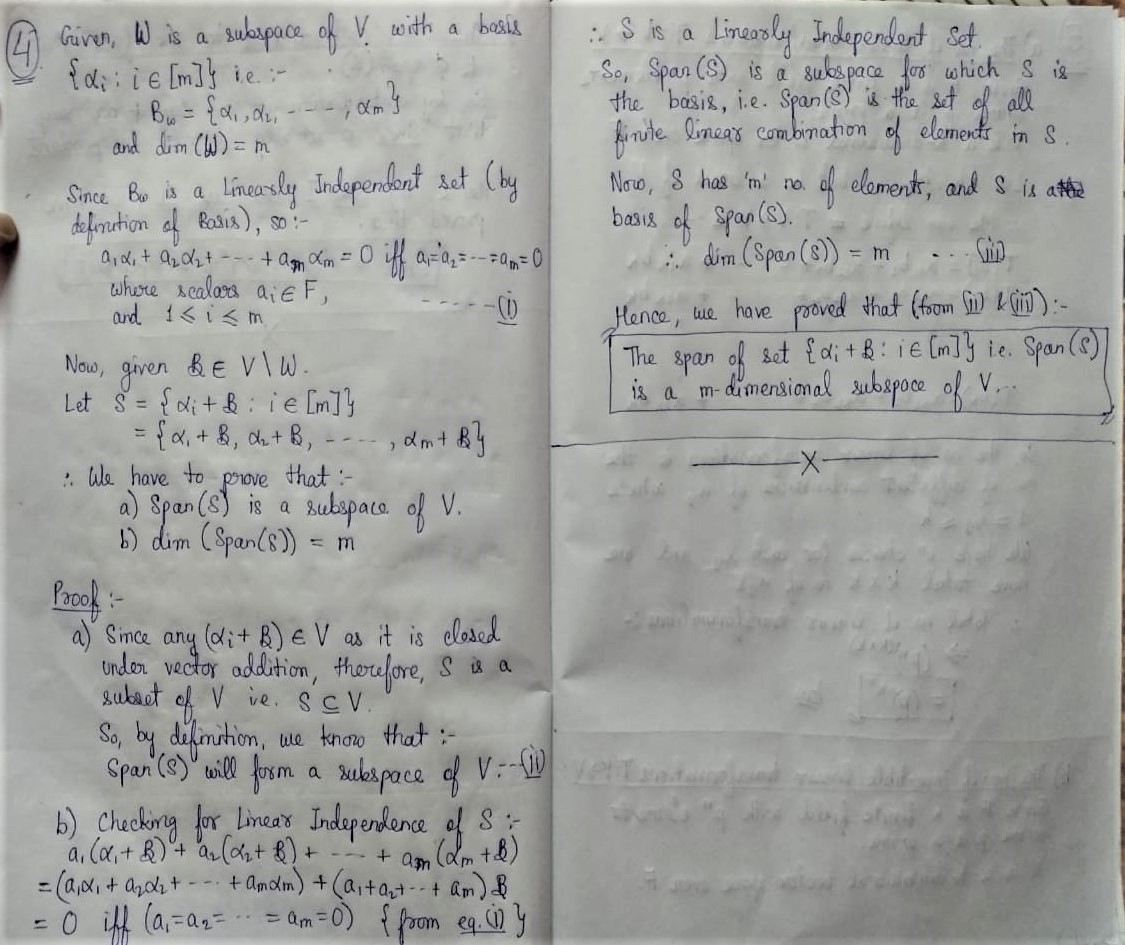 4 Given, W is a subspace of V with a basis
{αi : i ∈ [m]} i.e. :-
Bw = {α1, α2, ----, αm}
and dim (W) = m
Since Bw is a Linearly Independent set (by
definition of Basis), so :-
a1α1 + a2α2 + ---- + amαm = 0 iff a1=a2=--=am=0
where scalars ai ∈ F,
and 1 ≤ i ≤ m -----(i)
Now, given β ∈ V \ W.
Let S = {αi + β : i ∈ [m]}
= {α1 + β, α2 + β, ----, αm + β}
∴ We have to prove that :-
a) Span(S) is a subspace of V.
b) dim (Span(S)) = m
Proof :-
a) Since any (αi + β) ∈ V as it is closed
under vector addition, therefore, S is a
subset of V i.e. S ⊆ V.
So, by definition, we know that :-
Span(S) will form a subspace of V. --(ii)
b) Checking for Linear Independence of S :-
a1(α1 + β) + a2(α2 + β) + ---- + am(αm + β)
= (a1α1 + a2α2 + ---- + amαm) + (a1+a2+--+am)β
= 0 iff (a1=a2= -- =am=0) {from eq.(i)}
∴ S is a Linearly Independent Set.
So, Span(S) is a subspace for which S is
the basis, i.e. Span(S) is the set of all
finite linear combination of elements in S.
Now, S has 'm' no. of elements, and S is a
basis of Span(S).
∴ dim (Span(S)) = m --- (iii)
Hence, we have proved that (from (ii) & (iii)) :-
The span of set {αi + β : i ∈ [m]} i.e. Span(S)
is a m-dimensional subspace of V...
X